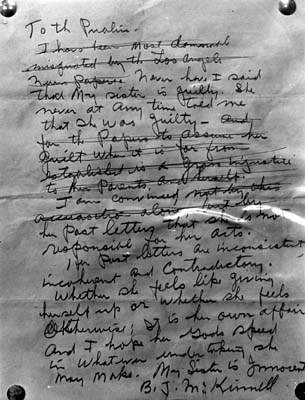 To th Public.
I have been most damnably
misquoted by th Los Angeles
Newspapers. Never have I said
that My sister is guilty. She
never at Any time told me
that She was guilty - And
for th Papers to assume her
Guilt when it is far from
established is a gross injustice
to her Parents, and herself.
I am convinced not by this
accusation alone, but by
her Past letters, that she is not
responsible for her acts.
Her Past letters are inconsistent,
incoherent And Contradictory.
Whether she feels like giving
herself up or whether she feels
Otherwise, It is her own affair
And I hope her Gods Speed
in whatever undertaking she
may make. My Sister is Innocent
B. J. McKinnell